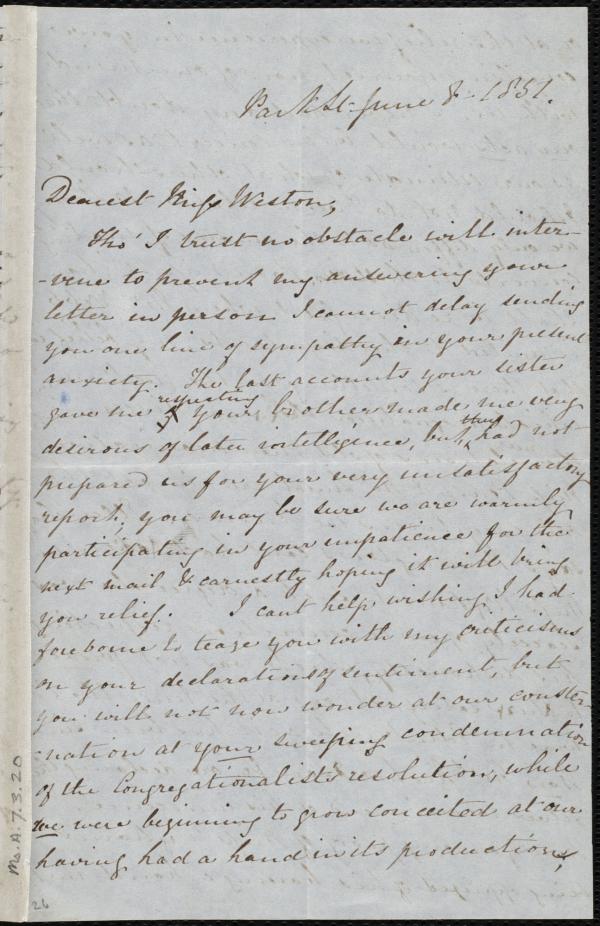 Park St. June 8. 1851.
Dearest Miss Weston,
Tho' I trust no obstacle will inter-
-vene to prevent my answering your
letter in person I cannot delay sending
you one line of sympathy in your present
anxiety. The last accounts your sister
gave me respecting your brother made me very
desirous of later intelligence, but they had not
prepared us for your very unsatisfactory
report; you may be sure we are warmly
participating in your impatience for the
next mail & earnestly hoping it will bring
you relief. I cant help wishing I had
forborne to teaze you with my criticisms
on your declaration of sentiment, but
you will not now wonder at our conster-
-nation at your sweeping condemnation
of the Congregationalists resolution, while
we were beginning to grow conceited at our
having had a hand in its production,
Ms. A. 7. 3. 20
26